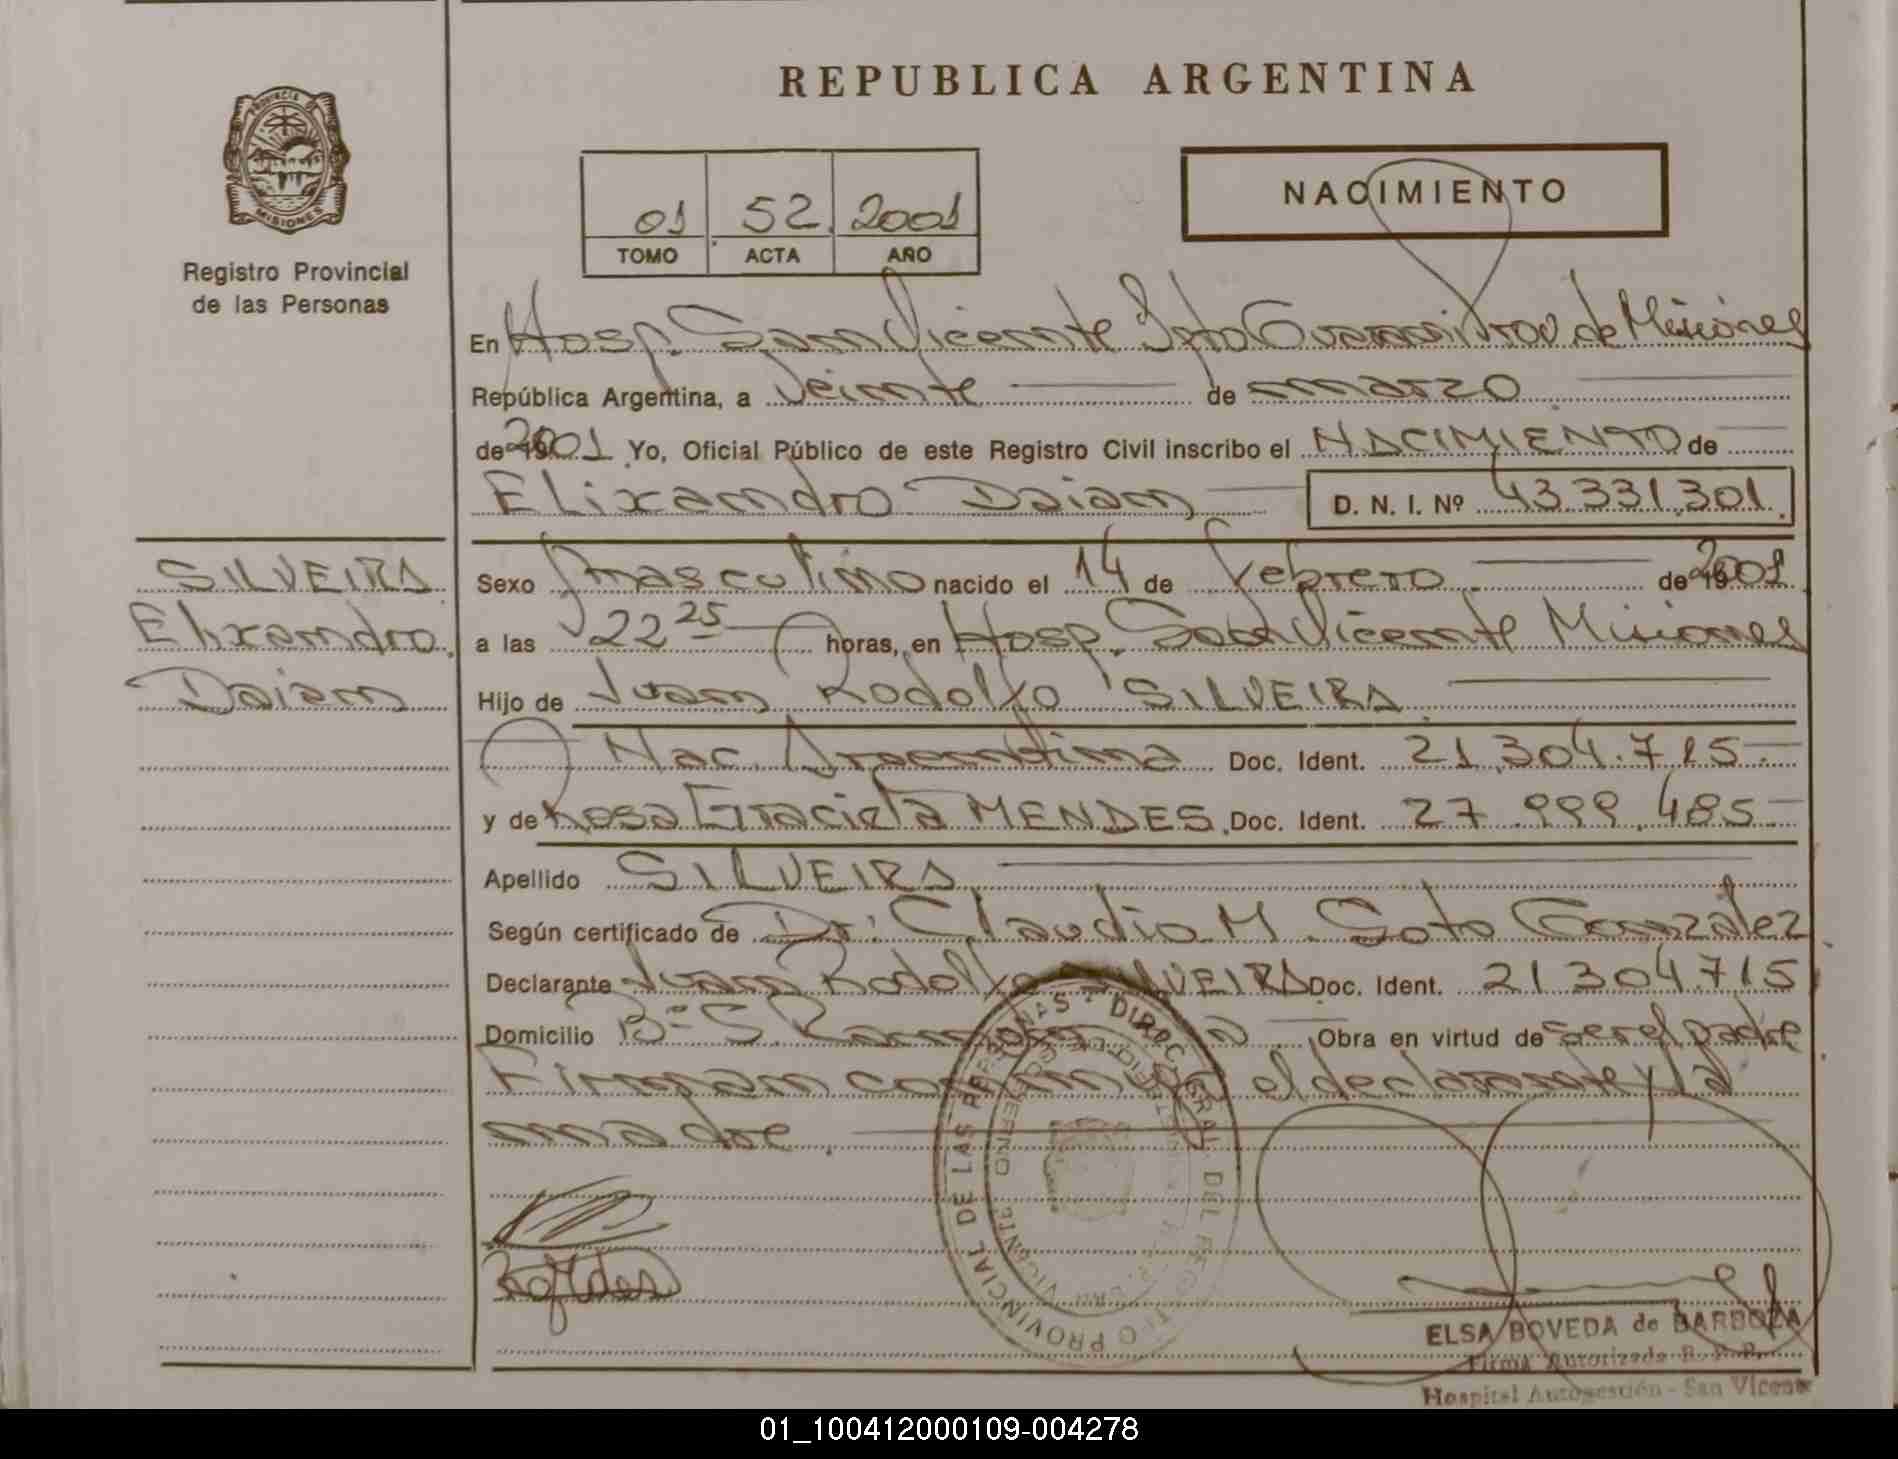 REPUBLICA ARGENTINA
PROVINCIA D
MISIONES
Registro Provincial
de las Personas
01 52 2001
TOMO ACTA AÑO
NACIMIENTO
En Hosp. San Vicente Dpto Guarani Prov de Misiones
República Argentina, a Veinte de marzo
de 2001 Yo, Oficial Público de este Registro Civil inscribo el NACIMIENTO de
Elixandro Daian D. N. I. Nº 43.331.301
SILVEIRA
Elixandro
Daian
Sexo masculino nacido el 14 de febrero de 2001
a las 22 25 horas, en Hosp. San Vicente Misiones
Hijo de Juan Rodolfo SILVEIRA
Nac. Argentina Doc. Ident. 21.304.715
y de Rosa Graciela MENDES. Doc. Ident. 27.999.485
Apellido SILVEIRA
Según certificado de Dr. Claudio M Soto Gonzalez
Declarante Juan Rodolfo SILVEIRA Doc. Ident. 21304715
Domicilio Bº S. Obra en virtud de ser el padre
Firman conmigo el declarante y la
madre.
ELSA BOVEDA de BARBOZA
Firma Autorizada R. P. P.
Hospital Autogestión - San Vicente
01_100412000109-004278